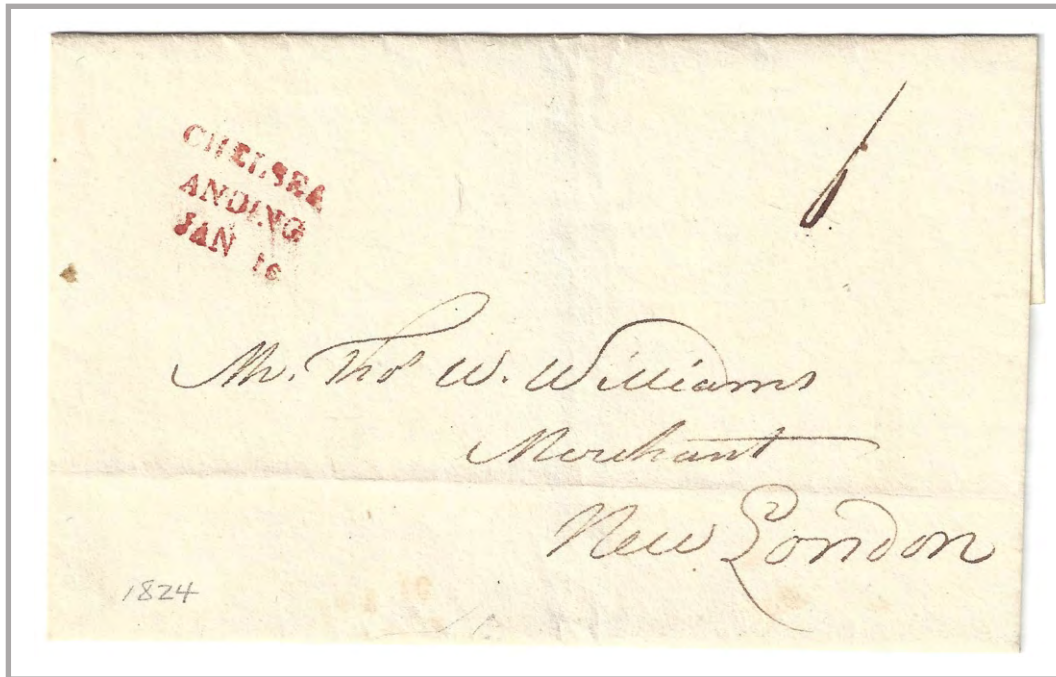 CHELSEA
ANDING
JAN 16
6
Mr. Thos W. Williams
Merchant
New London
1824